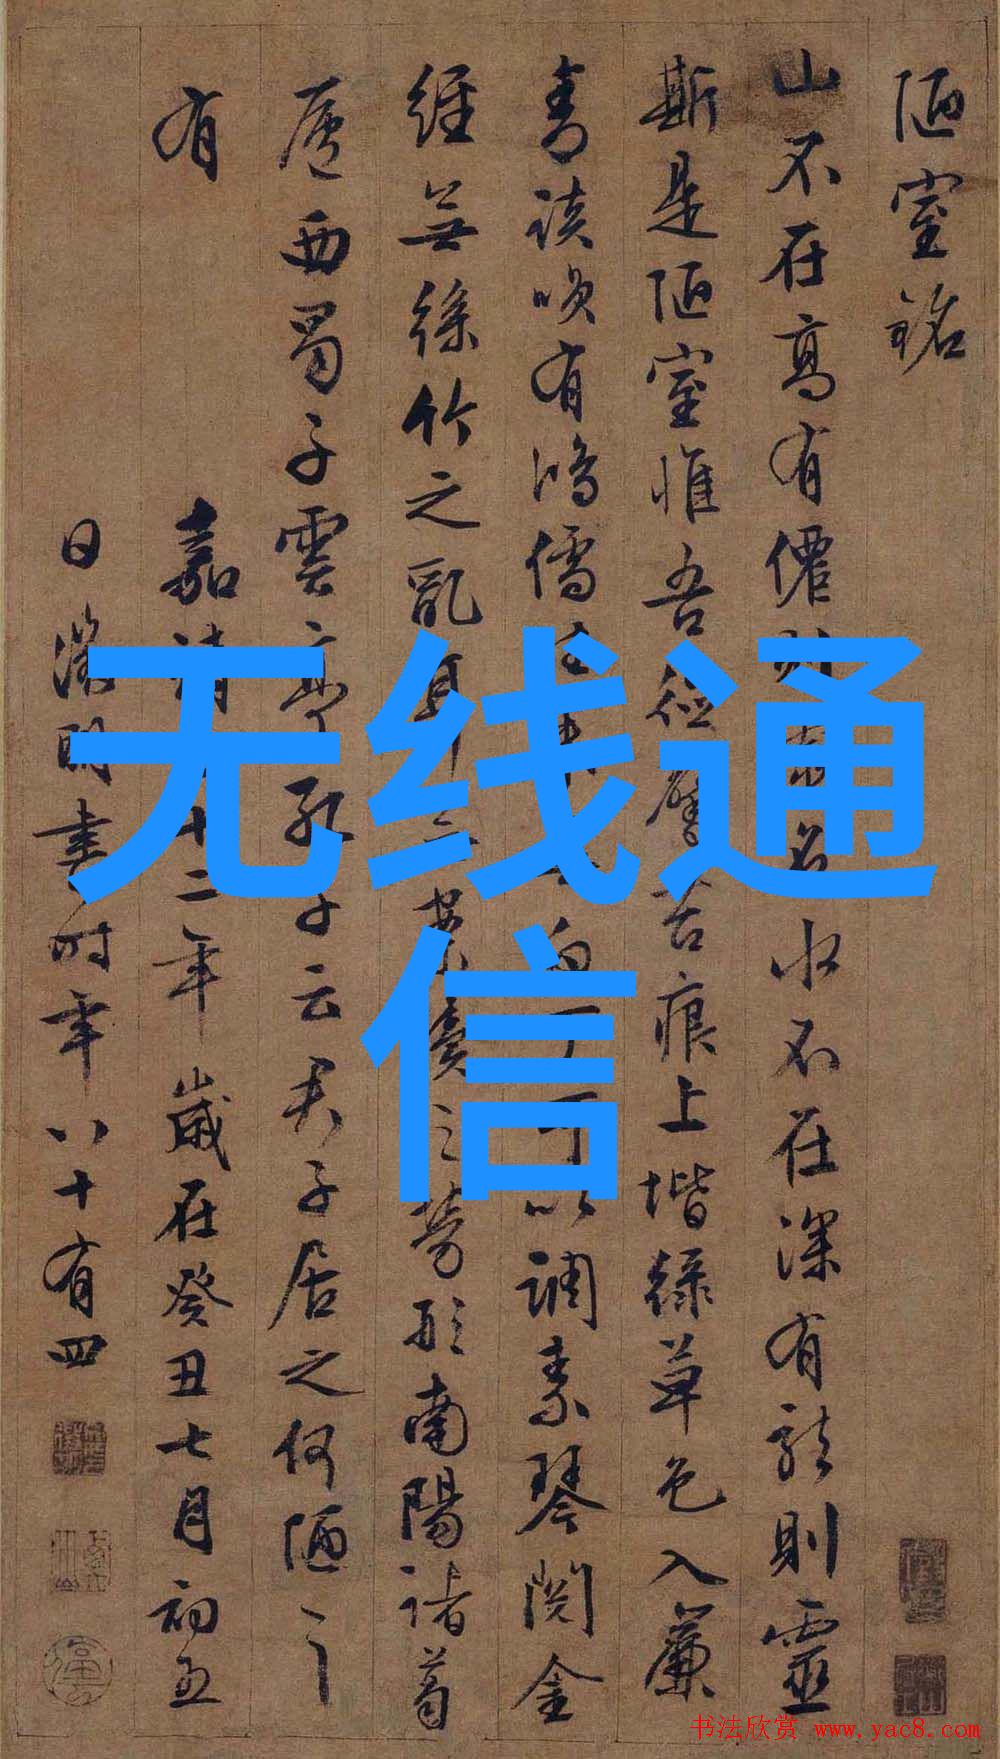 陋室銘
山不在高有僊則名水不在深有龍則靈
斯是陋室惟吾德馨苔痕上堦綠草色入簾
青談咲有鴻儒白丁可以調素琴閱金
經無絲竹之亂耳案牘之勞形南陽諸葛
廬西蜀子雲亭孔子云君子居之何陋之
有
嘉靖十二年歲在癸丑七月初五
日徵明書時年八十有四
无线通
信
书法欣赏 www.yac8.com